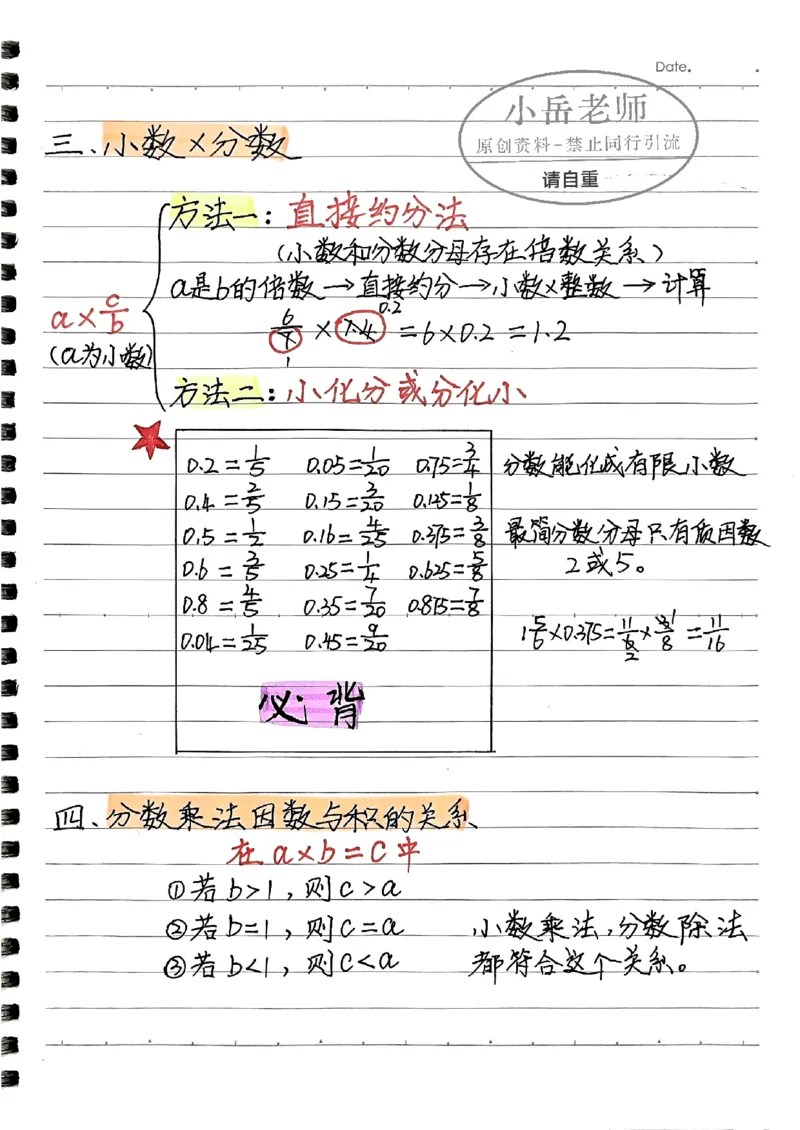 Date.
小岳老师
原创资料-禁止同行引流
请自重
三、小数×分数
方法一：直接约分法
（小数和分数分母存在倍数关系）
a是b的倍数→直接约分→小数×整数→计算
a×c/b
（a为小数）
6/7×1.4=6×0.2=1.2
0.2
1
方法二：小化分或分化小
0.2=1/5 0.05=1/20 0.75=3/4
0.4=2/5 0.15=3/20 0.125=1/8
0.5=1/2 0.16=4/25 0.375=3/8
0.6=3/5 0.25=1/4 0.625=5/8
0.8=4/5 0.35=7/20 0.875=7/8
0.04=1/25 0.45=9/20
必背
分数能化成有限小数
最简分数分母只有质因数
2或5。
1 5/6×0.375=11/6×3/8=11/16
1
2
四、分数乘法因数与积的关系
在a×b=c中
①若b>1，则c>a
②若b=1，则c=a
③若b<1，则c<a
小数乘法，分数除法
都符合这个关系。